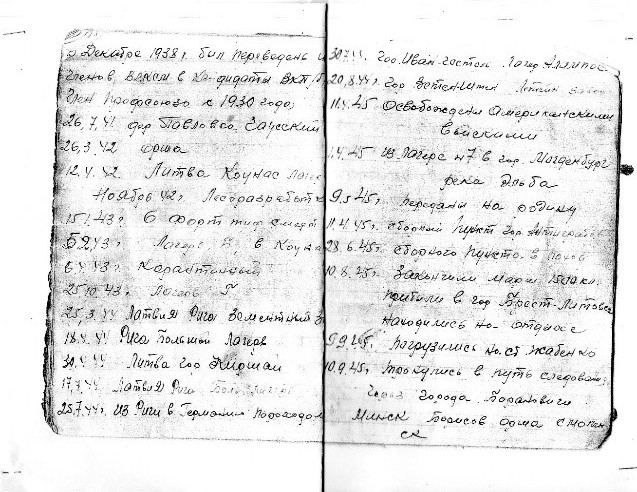 в Декабре 1938 г. был переведен и
членов ВЛКСМ в кандидаты ВКП
Член профсоюза с 1930 года,
26,7,41 дер Павловка
26,3,42 орша
12,4.42. Литва Коунас лагер
Ноябрь 42 г. Лесоразработк
15,1.43 г. 6 Форт тиф
5.2.43 г. Лагерь в Коуна
6.4.43 г. Карантинный
25,10.43. Лагерь Г.
25,3.44 Латвия Рига Цементный З
18.4.44 Рига Большой Лагерь
30.4.44 Литва гор
17.7.44. Латвия Рига Большой лагерь
25.7.44 г. из Риги в Германию Пароходом
30.7.44. гор. Лагер
20,8.44 г. гор завод
11.4.45 Освобождены Американскими
войсками
1.4.45 из Лагеря н7 в гор. Магденбург
река Эльба
9.5.45 г. переданы на родину
11.4.45 г. сборный пункт гор
28.6.45 г. сборного пункта в поход
10.8.45 г. Закончили Марш 1500 кл
прибыли в гор Брест-Литовск
находились на-отдыхе
5.9.45 г. Погрузились на.ст Жабенко
10.9.45 г. тронулись в путь следования
Через города Барановичи
Минск Борисов орша смолен
ск